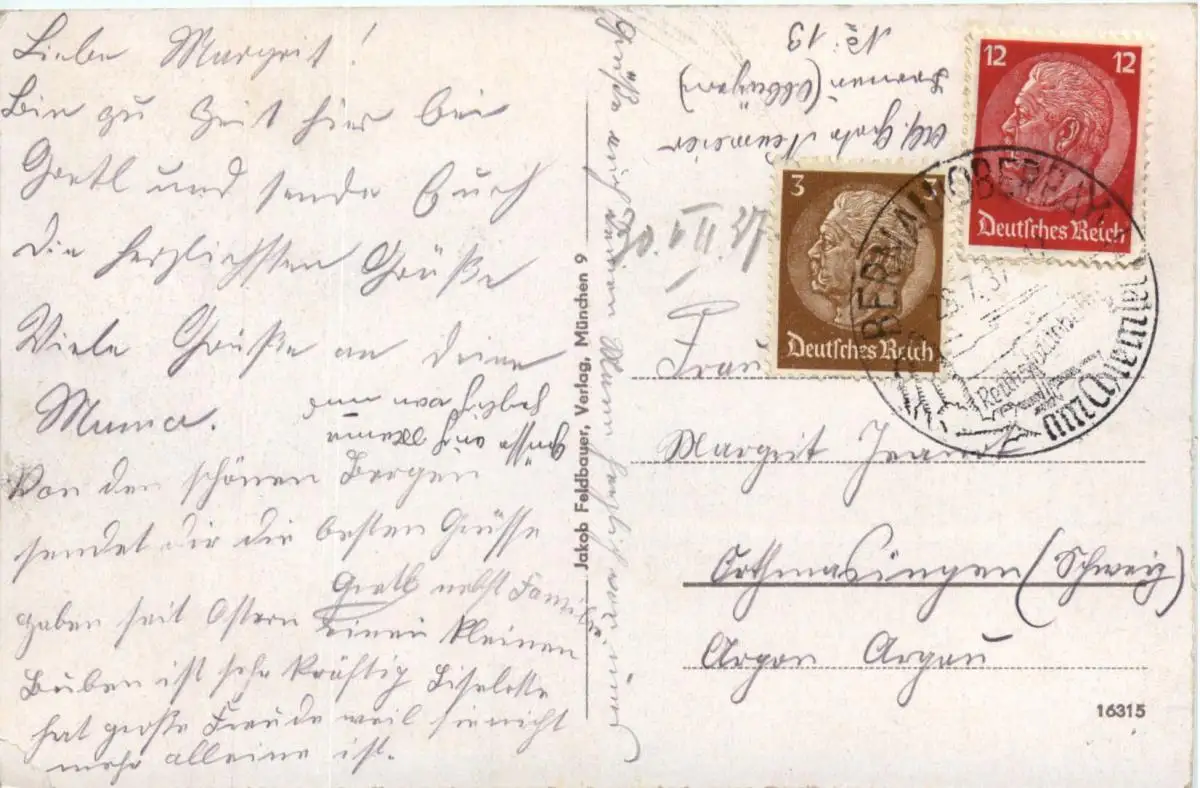 Liebe Margrit!
Bin zu Zeit hier bei
Gretl und sende Euch
die herzlichsten Grüße
Viele Grüße an deine
Mama.
Von den schönen Bergen
sendet dir die besten Grüsse
Gretl nebst Familie.
haben seit Ostern einen kleinen
Buben ist sehr kräftig Liselotte
hat große Freude weil sie nicht
mehr alleine ist.
Grüße auch deinen Mann herzlich von
Jakob Feldbauer, Verlag, München 9
Abs. Neumeier
(Obbayern)
No: 13
30.VII.37
12 12
Deutsches Reich
3 3
Deutsches Reich
OBERBAY
28.7.37
Frau
Margrit
Othmasingen (Schweiz)
Argon Argau
16315